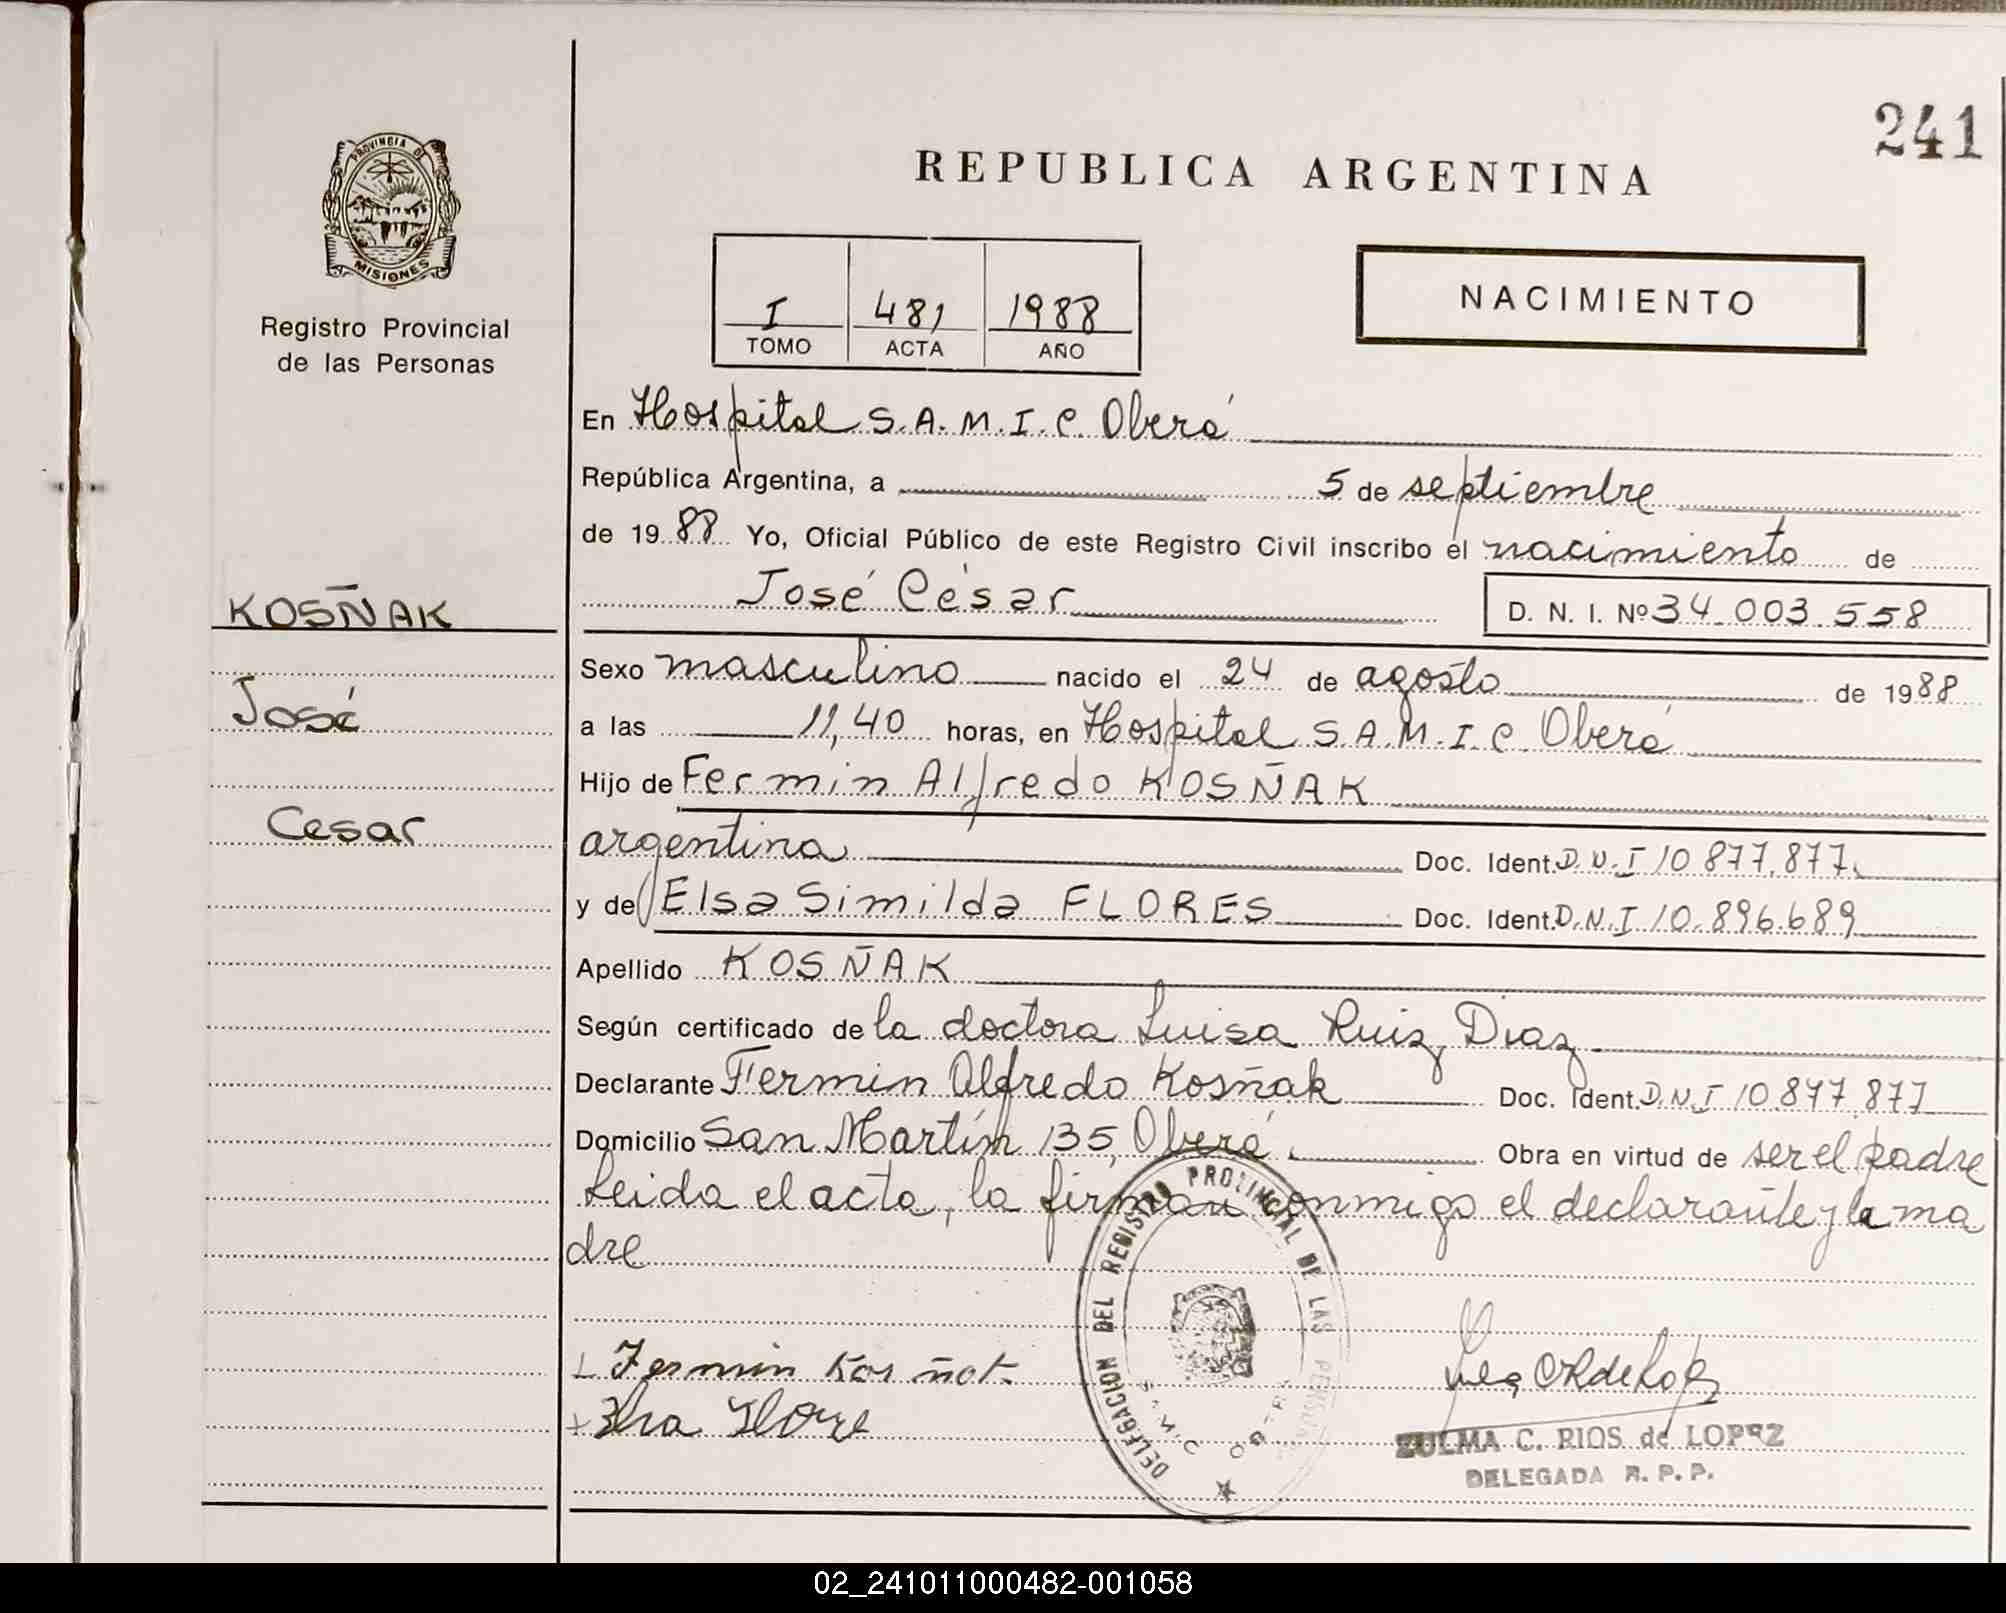 241
PROVINCIA DE
MISIONES
Registro Provincial
de las Personas
REPUBLICA ARGENTINA
I 481 1988
TOMO ACTA AÑO
NACIMIENTO
En Hospital S.A.M.I.C. Oberá
República Argentina, a 5 de septiembre
de 1988 Yo, Oficial Público de este Registro Civil inscribo el nacimiento de
José César
D. N. I. Nº 34.003.558
KOSÑAK
José
Cesar
Sexo masculino nacido el 24 de agosto de 1988
a las 11,40 horas, en Hospital S.A.M.I.C. Oberá
Hijo de Fermin Alfredo KOSÑAK
argentina Doc. Ident. D.N.I 10.877.877.
y de Elsa Similda FLORES Doc. Ident. D.N.I 10.896.689
Apellido KOSÑAK
Según certificado de la doctora Luisa Ruiz Diaz
Declarante Fermin Alfredo Kosñak Doc. Ident. D.N.I 10.877.877
Domicilio San Martín 135, Oberá. Obra en virtud de ser el padre
Leida el acta, la firman conmigo el declarante y la ma
dre
DELEGACION DEL REGISTRO PROVINCIAL DE LAS
Fermin
ZULMA C. RIOS de LOPEZ
DELEGADA R. P. P.
02_241011000482-001058